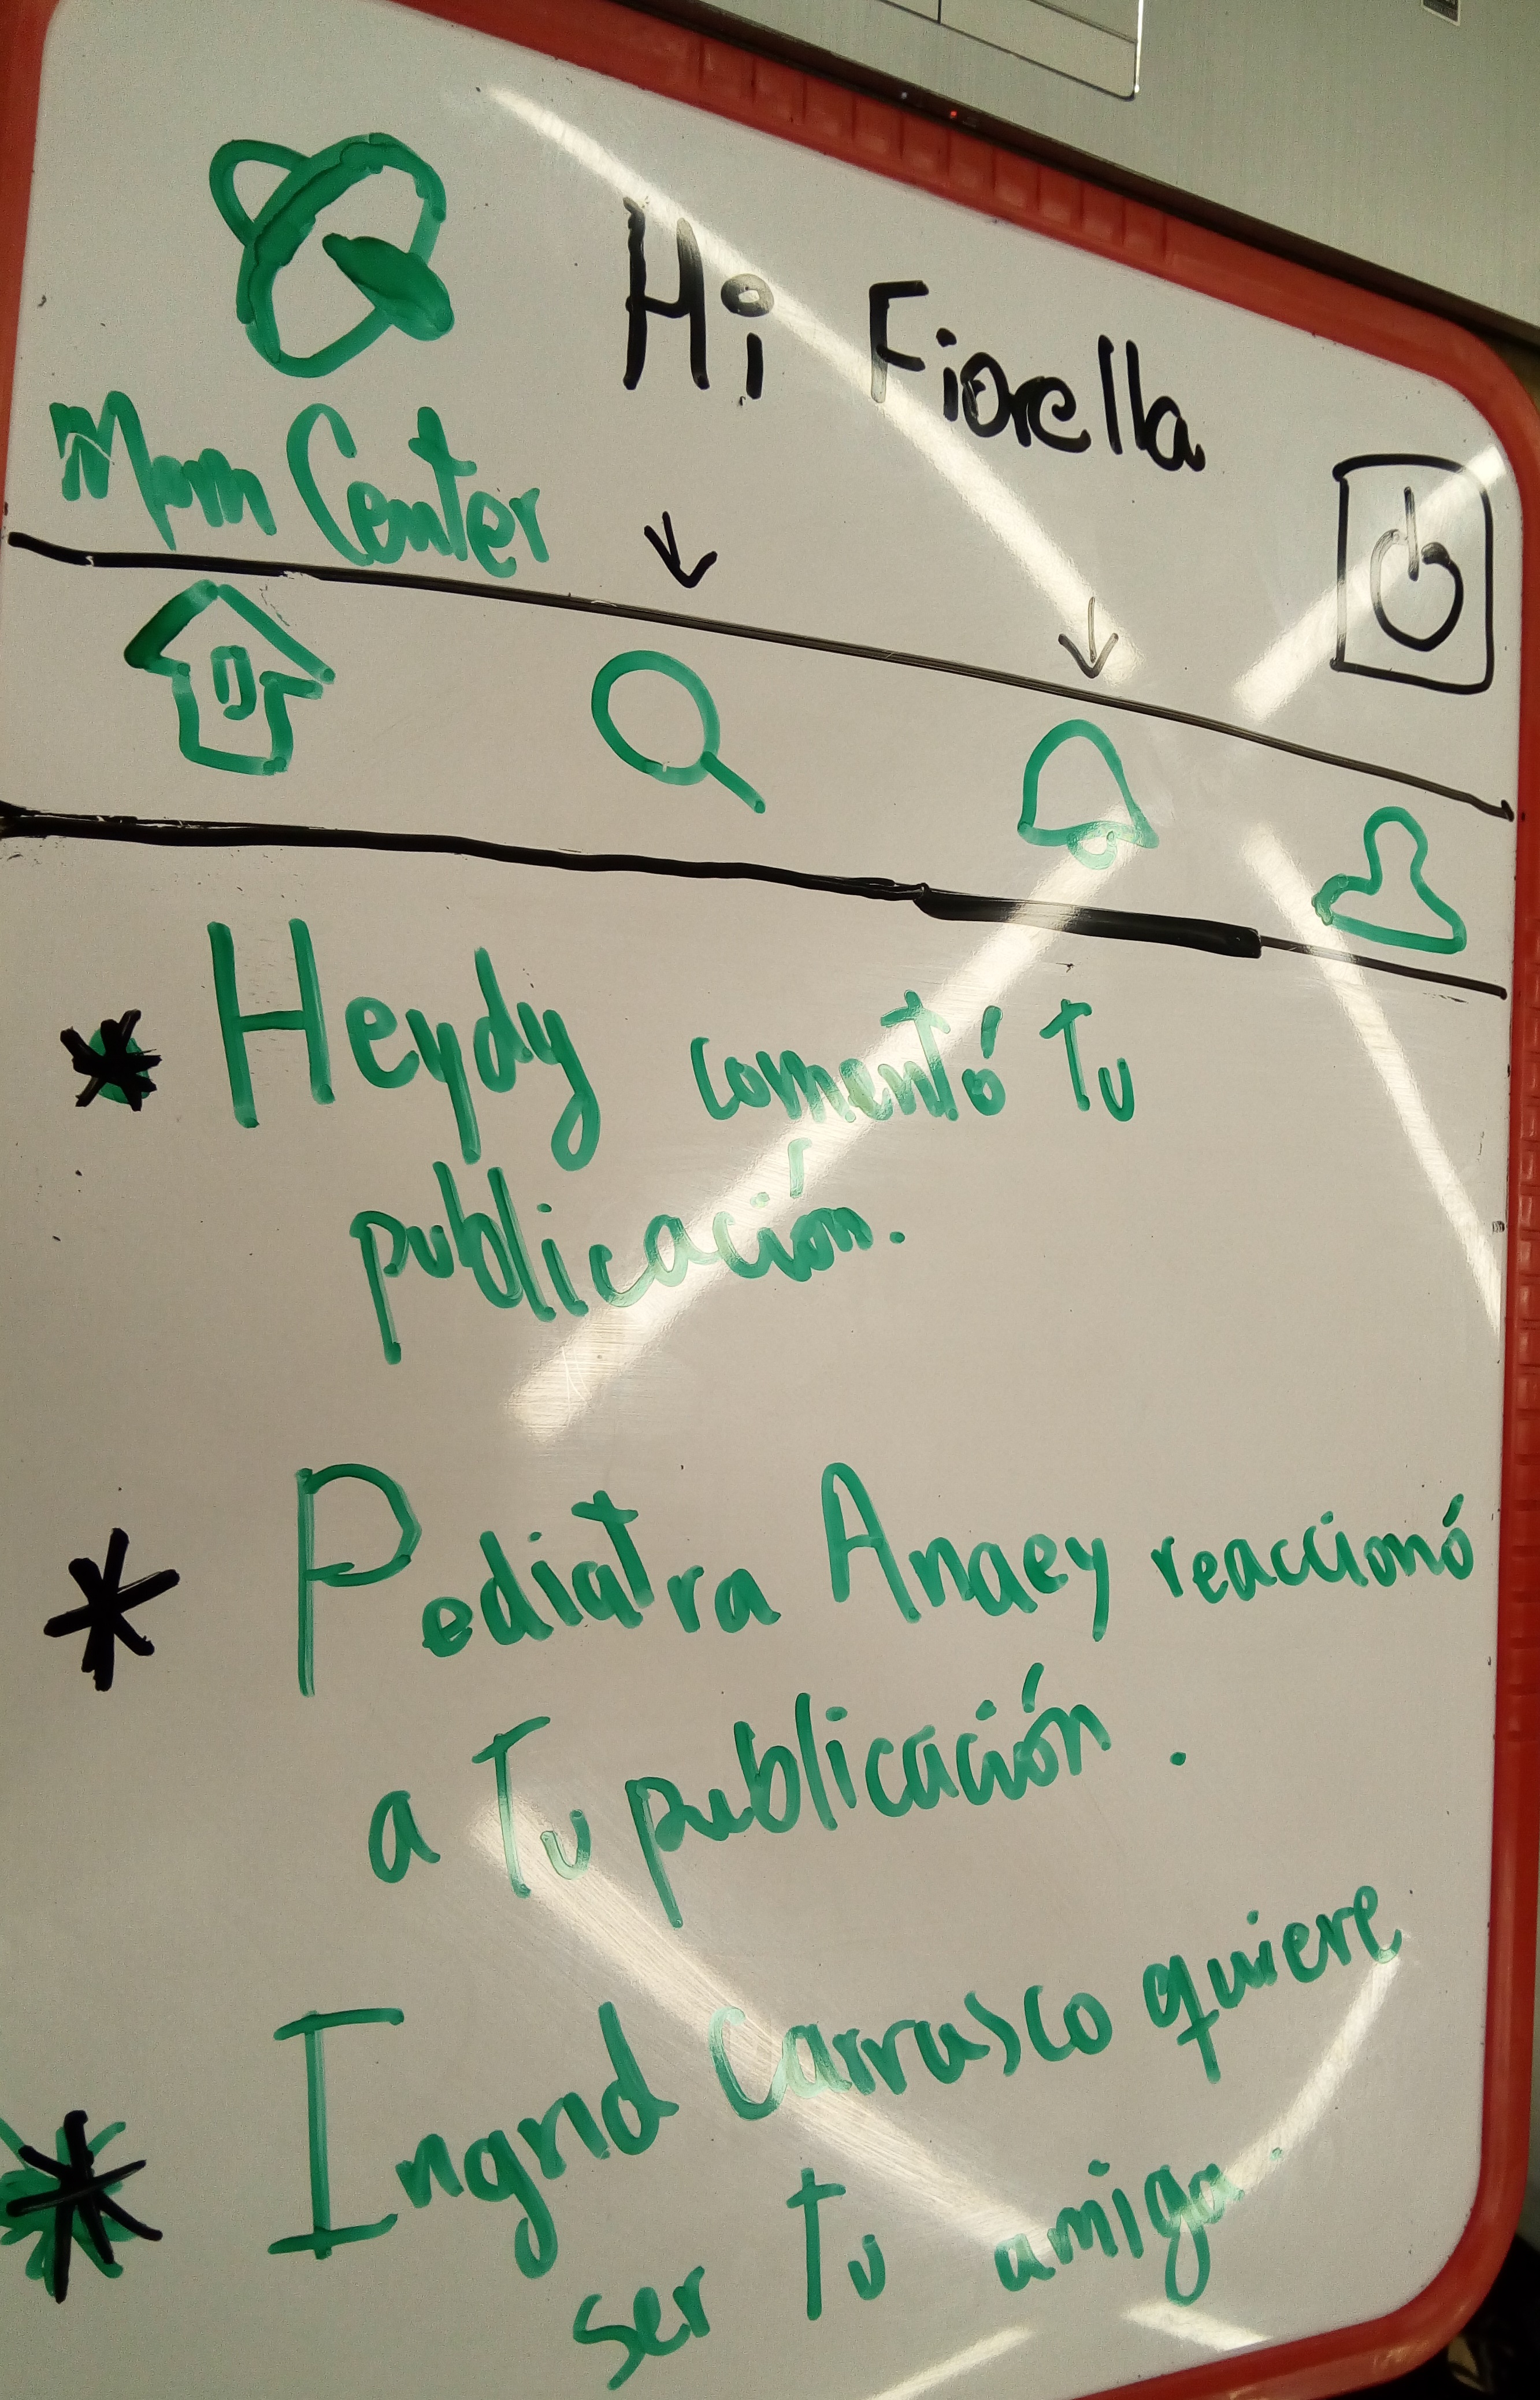 Hi Fiorella
Mom Center
* Heydy comentó tu
publicación.
* Pediatra Anaey reaccionó
a Tu publicación.
* Ingrid Carrasco quiere
ser tu amiga.